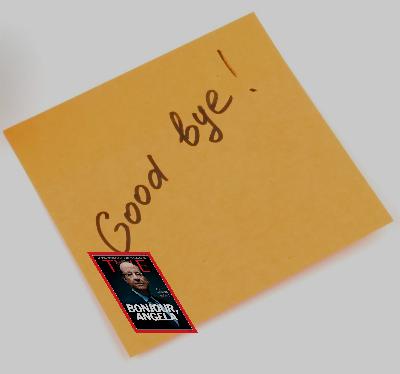 Good bye!
TIME
BONJOUR,
ANGELA